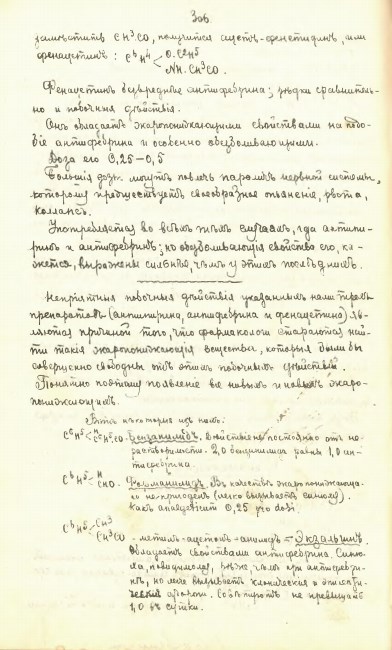 306
заместить CH³CO, получится ацетъ-фенетидинъ, или
фенацетинъ: C⁶H⁴ < O.C²H⁵
NH.CH³CO.
Фенацетинъ безвреднѣе антифебрина; рѣдки сравнитель-
но и побочныя дѣйствія.
Онъ обладаетъ жаропонижающими свойствами на подо-
біе антифебрина и особенно обезболивающими.
Доза его 0,25–0,5
Большія дозы могутъ повлечь параличъ нервной системы,
которому предшествуетъ своеобразное опьяненіе, рвота,
коллапсъ.
Употребляется во всѣхъ тѣхъ случаяхъ, гдѣ антипи-
ринъ и антифебринъ; но обезболивающія свойства его, ка-
жется, выражены сильнѣе, чѣмъ у этихъ послѣднихъ.
Непріятныя побочныя дѣйствія указанныхъ нами трехъ
препаратовъ (антипирина, антифебрина и фенацетина) яв-
ляются причиной того, что фармакологи стараются най-
ти такія жаропонижающія вещества, которыя были бы
совершенно свободны отъ этихъ побочныхъ дѣйствій.
Понятно поэтому появленіе все новыхъ и новыхъ жаро-
понижающихъ.
Вотъ нѣкоторыя изъ нихъ:
Бензанилидъ. Дѣйствіе не постоянно отъ не-
растворимости. 2,0 бензанилида равны 1,0 ан-
тифебрина.
Форманилидъ. Въ качествѣ жаропонижающа-
го не пригоденъ (легко вызываетъ синюху).
Какъ analgeticum 0,25 pro dosi.
- метилъ-ацетъ-анилидъ = Экзальгинъ.
Обладаетъ свойствами антифебрина. Синю-
ха, повидимому, рѣже, чѣмъ при антифебри-
нѣ, но легче вызываетъ клоническія и эпилепти-
ческія судороги. не превышать
1,0 въ сутки.